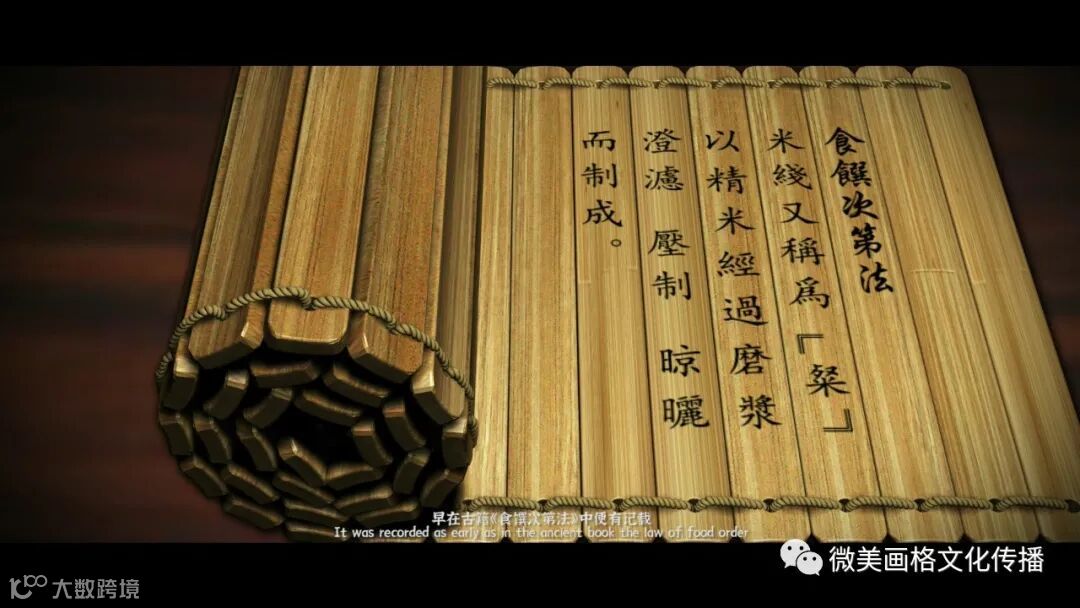 食饌次第法
米綫又稱爲『粲』
以精米經過磨漿
澄濾 壓制 晾曬
而制成。
早在古籍《食馔次第法》中便有记载
It was recorded as early as in the ancient book the law of food order
微美画格文化传播
大数跨境